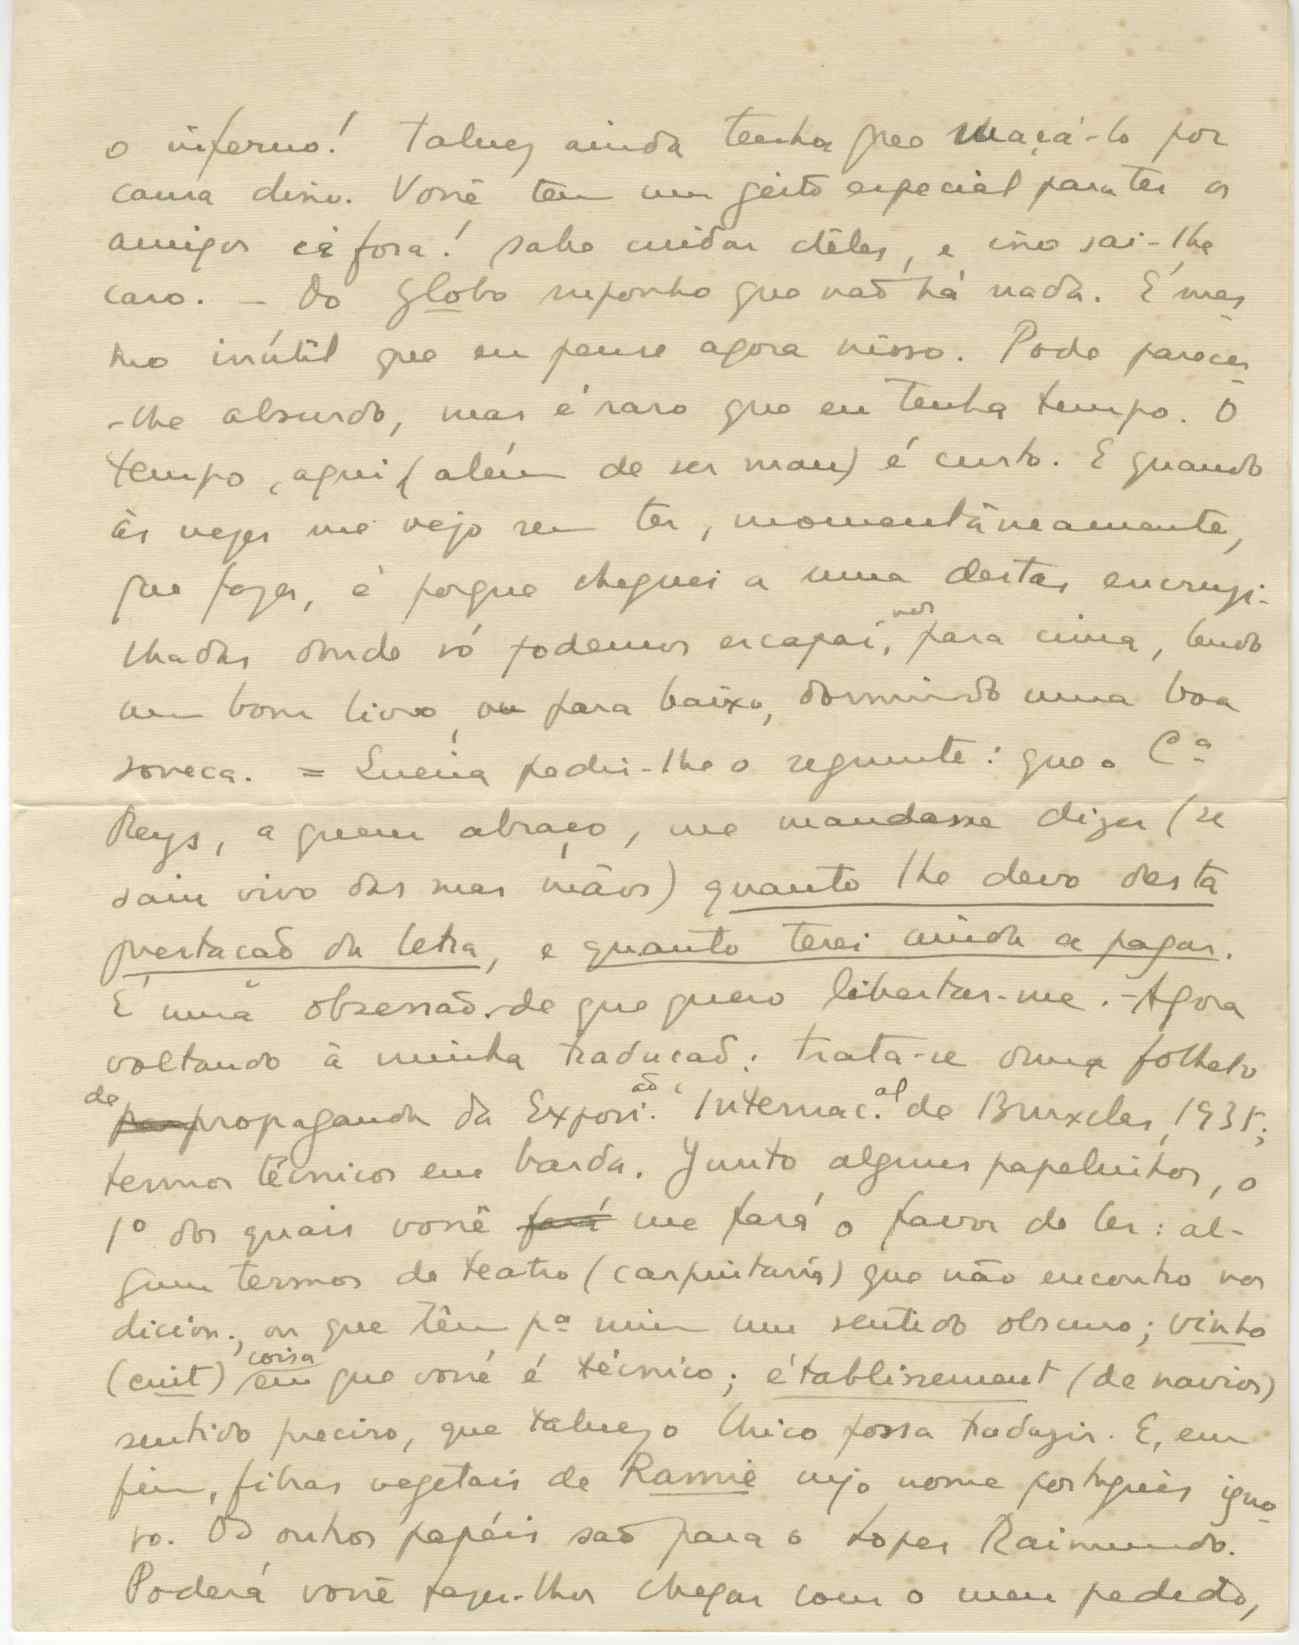 o inferno! Talvez ainda tenha que maçá-lo por
causa disso. Você tem um geito especial para ter os
amigos cá fora! Sabe cuidar dêles, e isso sai-lhe
caro. – Do Globo suponho que naõ há nada. É mes-
mo inútil que eu pense agora nisso. Pode parecer-
-lhe absurdo, mas é raro que eu tenha tempo. O
tempo, aqui (além de ser mau) é curto. E quando
às vezes me vejo sem ter, momentâneamente,
que fazer, é porque cheguei a uma destas encruzi-
lhadas donde só podemos escapar, ou para cima, lendo
um bom livro, ou para baixo, dormindo uma boa
soneca. = Queria pedir-lhe o seguinte: que o Cª
Reys, a quem abraço, me mandasse dizer (se
saiu vivo das suas mãos) quanto lhe devo desta
prestacaõ da letra, e quanto terei ainda a pagar.
É uma obsessão de que quero libertar-me. – Agora
voltando à minha traducaõ: trata-se duma folheto
de par propaganda da Exposi.ão Internac.al de Bruxelas, 1935;
termos técnicos em barda. Junto alguns papelinhos, o
1º dos quais você fará me fará o favor de ler: al-
guns termos de teatro (carpintaria) que não encontro nos
dicion., ou que têm pª mim um sentido obscuro; vinho
(cuit) coisa em que você é técnico; établissement (de navios)
sentido preciso, que talvez o Chico possa traduzir. E, em
fim, fibras vegetais de Ramie cujo nome português igno-
ro. Os outros papéis saõ para o Lopes Raimundo.
Poderá você fazer-lhos chegar com o meu pedido,